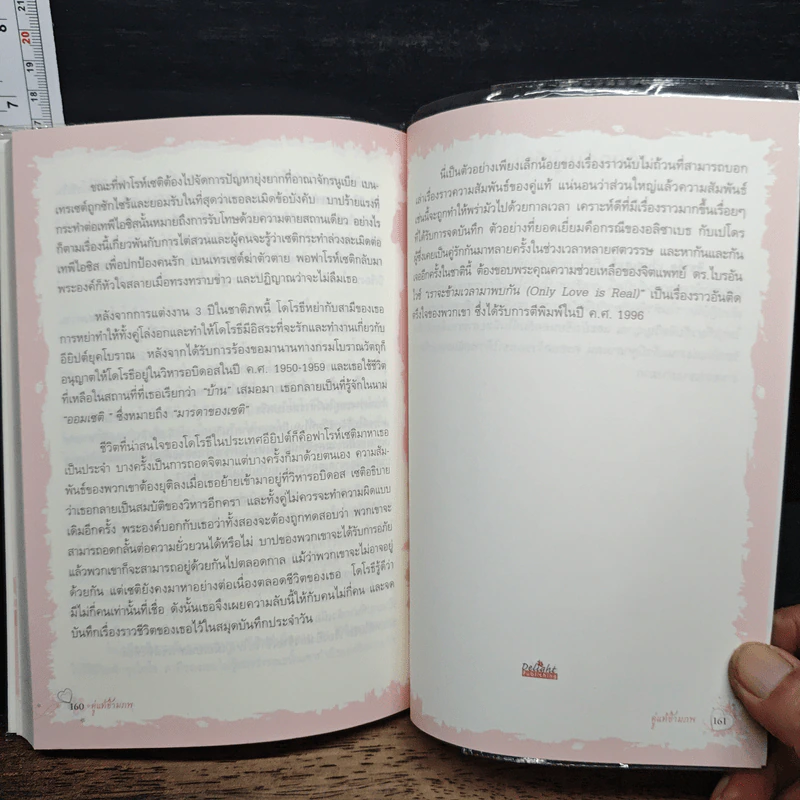 ขณะที่ฟาโรห์เซติต้องไปจัดการปัญหายุ่งยากที่อาณาจักรนูเบีย เบน-
เทรเซต์ถูกซักไซร้และยอมรับในที่สุดว่าเธอละเมิดข้อบังคับ บาปร้ายแรงที่
กระทำต่อเทพีไอซิสนั้นหมายถึงการรับโทษด้วยความตายสถานเดียว อย่างไร
ก็ตามเรื่องนี้เกี่ยวพันกับการไต่สวนและผู้คนจะรู้ว่าเซติกระทำล่วงละเมิดต่อ
เทพีไอซิส เพื่อปกป้องคนรัก เบนเทรเซต์ฆ่าตัวตาย พอฟาโรห์เซติกลับมา
พระองค์ก็หัวใจสลายเมื่อทรงทราบข่าว และปฏิญาณว่าจะไม่ลืมเธอ
หลังจากการแต่งงาน 3 ปีในชาติภพนี้ โดโรธีหย่ากับสามีของเธอ
การหย่าทำให้ทั้งคู่โล่งอกและทำให้โดโรธีมีอิสระที่จะรักและทำงานเกี่ยวกับ
อียิปต์ยุคโบราณ หลังจากได้รับการร้องขอมานานทางกรมโบราณวัตถุก็
อนุญาตให้โดโรธีอยู่ในวิหารอบิดอสในปี ค.ศ. 1950-1959 และเธอใช้ชีวิต
ที่เหลือในสถานที่ที่เธอเรียกว่า "บ้าน" เสมอมา เธอกลายเป็นที่รู้จักในนาม
"ออมเซติ " ซึ่งหมายถึง "มารดาของเซติ"
ชีวิตที่น่าสนใจของโดโรธีในประเทศอียิปต์ก็คือฟาโรห์เซติมาหาเธอ
เป็นประจำ บางครั้งเป็นการถอดจิตมาแต่บางครั้งก็มาด้วยตนเอง ความสัม-
พันธ์ของพวกเขาต้องยุติลงเมื่อเธอย้ายเข้ามาอยู่ที่วิหารอบิดอส เซติอธิบาย
ว่าเธอกลายเป็นสมบัติของวิหารอีกครา และทั้งคู่ไม่ควรจะทำความผิดแบบ
เดิมอีกครั้ง พระองค์บอกกับเธอว่าทั้งสองจะต้องถูกทดสอบว่า พวกเขาจะ
สามารถอดกลั้นต่อความยั่วยวนได้หรือไม่ บาปของพวกเขาจะได้รับการอภัย
แล้วพวกเขาก็จะสามารถอยู่ด้วยกันไปตลอดกาล แม้ว่าพวกเขาจะไม่อาจอยู่
ด้วยกัน แต่เซติยังคงมาหาอย่างต่อเนื่องตลอดชีวิตของเธอ โดโรธีรู้ดีว่า
มีไม่กี่คนเท่านั้นที่เชื่อ ดังนั้นเธอจึงเผยความลับนี้ให้กับคนไม่กี่คน และจด
บันทึกเรื่องราวชีวิตของเธอไว้ในสมุดบันทึกประจำวัน
160 คู่แท้ข้ามภพ
นี่เป็นตัวอย่างเพียงเล็กน้อยของเรื่องราวนับไม่ถ้วนที่สามารถบอก
เล่าเรื่องราวความสัมพันธ์ของคู่แท้ แน่นอนว่าส่วนใหญ่แล้วความสัมพันธ์
เช่นนี้จะถูกทำให้พร่ามัวไปด้วยกาลเวลา เคราะห์ดีที่มีเรื่องราวมากขึ้นเรื่อยๆ
ที่ได้รับการจดบันทึก ตัวอย่างที่ยอดเยี่ยมคือกรณีของอลิซาเบธ กับเปโดร
ผู้ซึ่งเคยเป็นคู่รักกันมาหลายครั้งในช่วงเวลาหลายศตวรรษ และหากันและกัน
เจออีกครั้งในชาตินี้ ต้องขอบพระคุณความช่วยเหลือของจิตแพทย์ ดร.ไบรอัน
ไวส์ "เราจะข้ามเวลามาพบกัน (Only Love is Real)" เป็นเรื่องราวอันติด
ตรึงใจของพวกเขา ซึ่งได้รับการตีพิมพ์ในปี ค.ศ. 1996
Delight
Publishing
คู่แท้ข้ามภพ 161